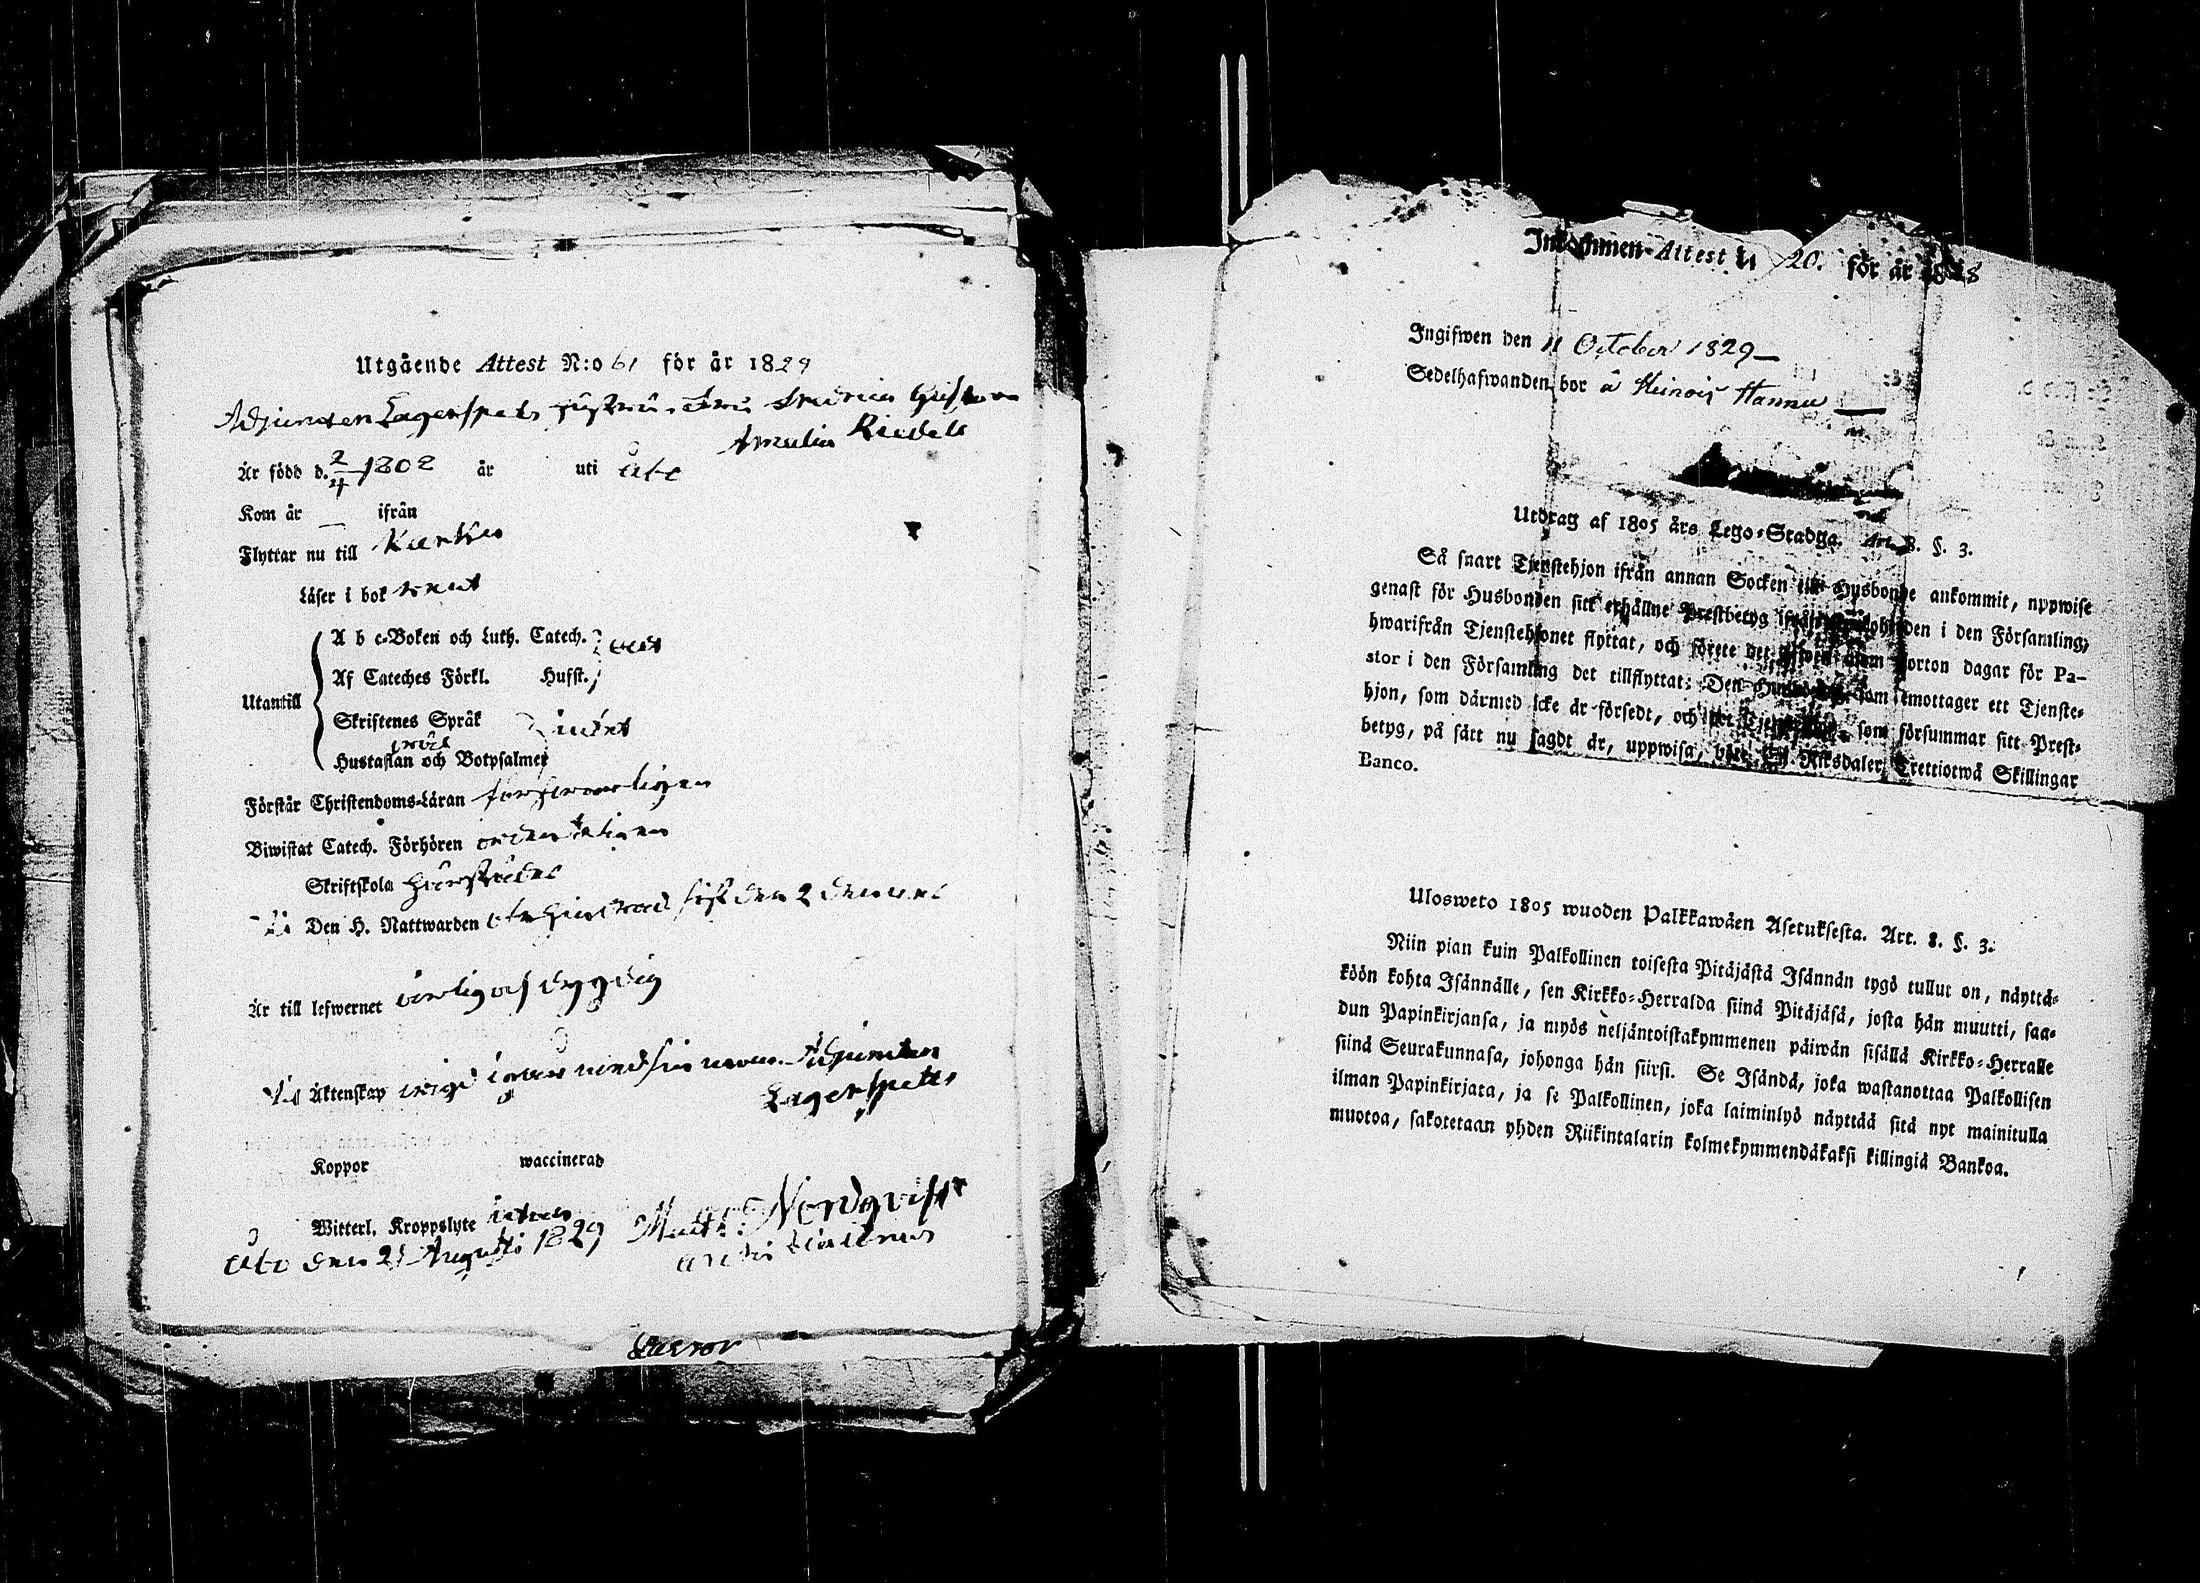 Utgående Attest N:o 61 för år 1829
Adjuncten Lagerspets hustru, Fru
Amalia Riedell
Är född d. 2/4 1802 år uti Åbo
Kom år — ifrån
Flyttar nu till
Läser i bok rent
Utantill
A b c-Boken och Luth. Catech.
Af Cateches Förkl. Husst.
Skriftenes Språk
Hustaflan och Botpsalmer
Förstår Christendoms-Läran försvarligen
Biwistat Catech. Förhören ordenteligen
Skriftskola
Den H. Nattwarden sist den 2 dennes
Är till lefwernet ärlig och dygdig
Äktenskap med sin man Adjuncten
Lagerspets
Koppor waccinerad
Witterl. Kroppslyte intet
Åbo den 25 Augusti 1829 Matth: Nordqvist
Inkommen Attest N 20. för år 1828
Ingifwen den 11 October 1829 —
Sedelhafwanden bor å Heinois Hannu —
Utdrag af 1805 års Lego-Stadga. Art. 8. §. 3.
Så snart Tjenstehjon ifrån annan Socken till Husbonde ankommit, uppwise
genast för Husbonden sitt erhållne Prestbetyg ifrån Kyrkoherden i den Församling,
hwarifrån Tjenstehjonet flyttat, och förete det äfwen inom Fjorton dagar för Pa-
stor i den Församling det tillflyttat: Den Husbonde, som emottager ett Tjenste-
hjon, som därmed icke är försedt, och det Tjenstehjon, som försummar sitt Prest-
betyg, på sätt nu sagdt är, uppwisa, böte En Riksdaler Trettiotwå Skillingar
Banco.
Ulosweto 1805 wuoden Palkkawäen Asetuksesta. Art. 8. §. 3.
Niin pian kuin Palkollinen toisesta Pitäjästä Isännän tygö tullut on, näyttä-
köön kohta Isännälle, sen Kirkko-Herralda siinä Pitäjäsä, josta hän muutti, saa-
dun Papinkirjansa, ja myös neljäntoistakymmenen päiwän sisällä Kirkko-Herralle
siinä Seurakunnasa, johonga hän siirsi. Se Isändä, joka wastanottaa Palkollisen
ilman Papinkirjata, ja se Palkollinen, joka laiminlyö näyttää sitä nyt mainitulla
muotoa, sakotetaan yhden Riikintalarin kolmekymmendäkaksi killingiä Bankoa.